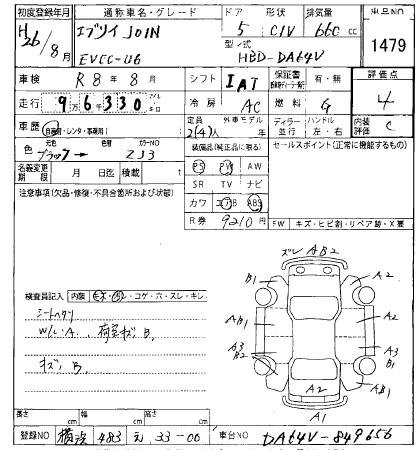 初度登録年月 通称車名・グレード ドア 形状 排気量 出品NO
H26/8月 エブリイ JOIN 5 CIV 660 cc 1479
型式
HBD-DA64V
車検 R8年8月 シフト IAT 保証書 有・無 評価点
走行 9万6千330 冷房 AC 燃料 G 4
車歴 自家用・レンタ・事業用( ) 定員 2(4)人 外車モデル 年 ディーラー 並行 ハンドル 左/右 内装 C
色 元色 ブラック → 色替 カラーNO ZJ3 装備品(純正品に限る) セールスポイント(正常に機能するもの)
名義変更期限 月 日迄 積載 t PS PW AW
注意事項(欠品・修復・不具合箇所および状態) SR TV ナビ
カワ エアB ABS
R券 9210円 FW キズ・ヒビ割・リペア跡・X要
ズレ AB2
B1 A2
AB1 A2
A3 B2 A3 B1
A2 AB1
A1
検査員記入 内装 キズ・汚・コゲ・穴・スレ・キレ
シートヘタリ
W/C・A、荷室キズ、B、
キズ、B、
長さ cm 幅 cm 高さ cm
登録NO 横浜 483 え 33-00 車台NO DA64V-849656